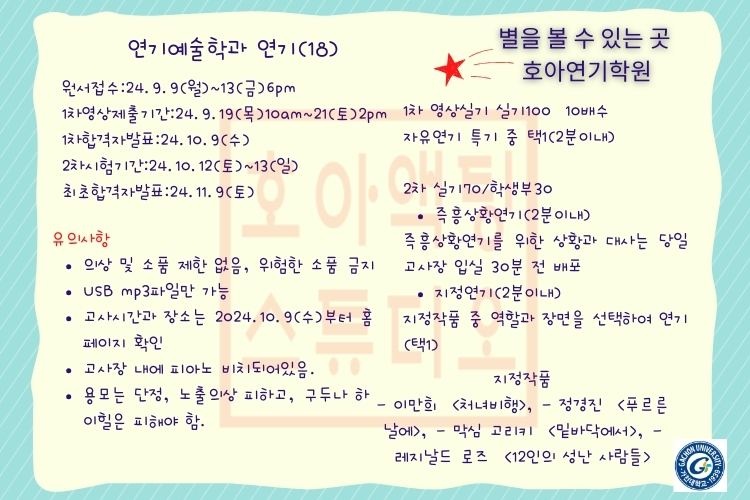 별을 볼 수 있는 곳
호아연기학원
연기예술학과 연기(18)
원서접수:24. 9. 9(월)~13(금)6pm
1차영상제출기간:24. 9. 19(목)10am~21(토)2pm
1차합격자발표:24. 10. 9(수)
2차시험기간:24. 10. 12(토)~13(일)
최초합격자발표:24. 11. 9(토)
유의사항
• 의상 및 소품 제한 없음, 위험한 소품 금지
• USB mp3파일만 가능
• 고사시간과 장소는 2024. 10. 9(수)부터 홈
페이지 확인
• 고사장 내에 피아노 비치되어있음.
• 용모는 단정, 노출의상 피하고, 구두나 하
이힐은 피해야 함.
1차 영상실기 실기100 10배수
자유연기 특기 중 택1(2분이내)
2차 실기70/학생부30
• 즉흥상황연기(2분이내)
즉흥상황연기를 위한 상황과 대사는 당일
고사장 입실 30분 전 배포
• 지정연기(2분이내)
지정작품 중 역할과 장면을 선택하여 연기
(택1)
지정작품
- 이만희 <처녀비행>, - 정경진 <푸르른
날에>, - 막심 고리키 <밑바닥에서>, -
레지날드 로즈 <12인의 성난 사람들>
호아액팅
스튜디오
GACHON UNIVERSITY
가천대학교 1939